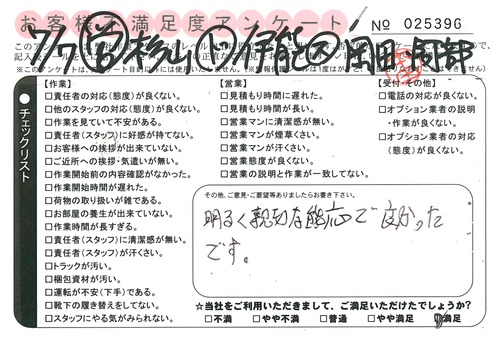 お客様不満足度アンケート
№ 025396
7/7
チェックリスト
【作業】
□責任者の対応(態度)が良くない。
□他のスタッフの対応(態度)が良くない。
□作業を見ていて不安がある。
□責任者(スタッフ)に好感が持てない。
□お客様への挨拶が出来ていない。
□ご近所への挨拶・気遣いが無い。
□作業開始前の内容確認がなかった。
□作業開始時間が遅れた。
□荷物の取り扱いが雑である。
□お部屋の養生が出来ていない。
□作業時間が長すぎる。
□責任者(スタッフ)に清潔感が無い。
□責任者(スタッフ)が汗くさい。
□トラックが汚い。
□梱包資材が汚い。
□運転が不安(下手)である。
□靴下の履き替えをしてない。
□スタッフにやる気がみられない。
【営業】
□見積もり時間に遅れた。
□見積もり時間が長い。
□営業マンに清潔感が無い。
□営業マンが煙草くさい。
□営業マンが汗くさい。
□営業態度が良くない。
□営業の説明と作業が一致してない。
【受付・その他】
□電話の対応が良くない。
□オプション業者の説明・作業が良くない。
□オプション業者の対応(態度)が良くない。
その他、ご意見・ご要望等ありましたらお書き下さい。
明るく親切な対応で良かった
です。
☆当社をご利用いただきまして、ご満足いただけたでしょうか?
□不満 □やや不満 □普通 □やや満足 ☑満足